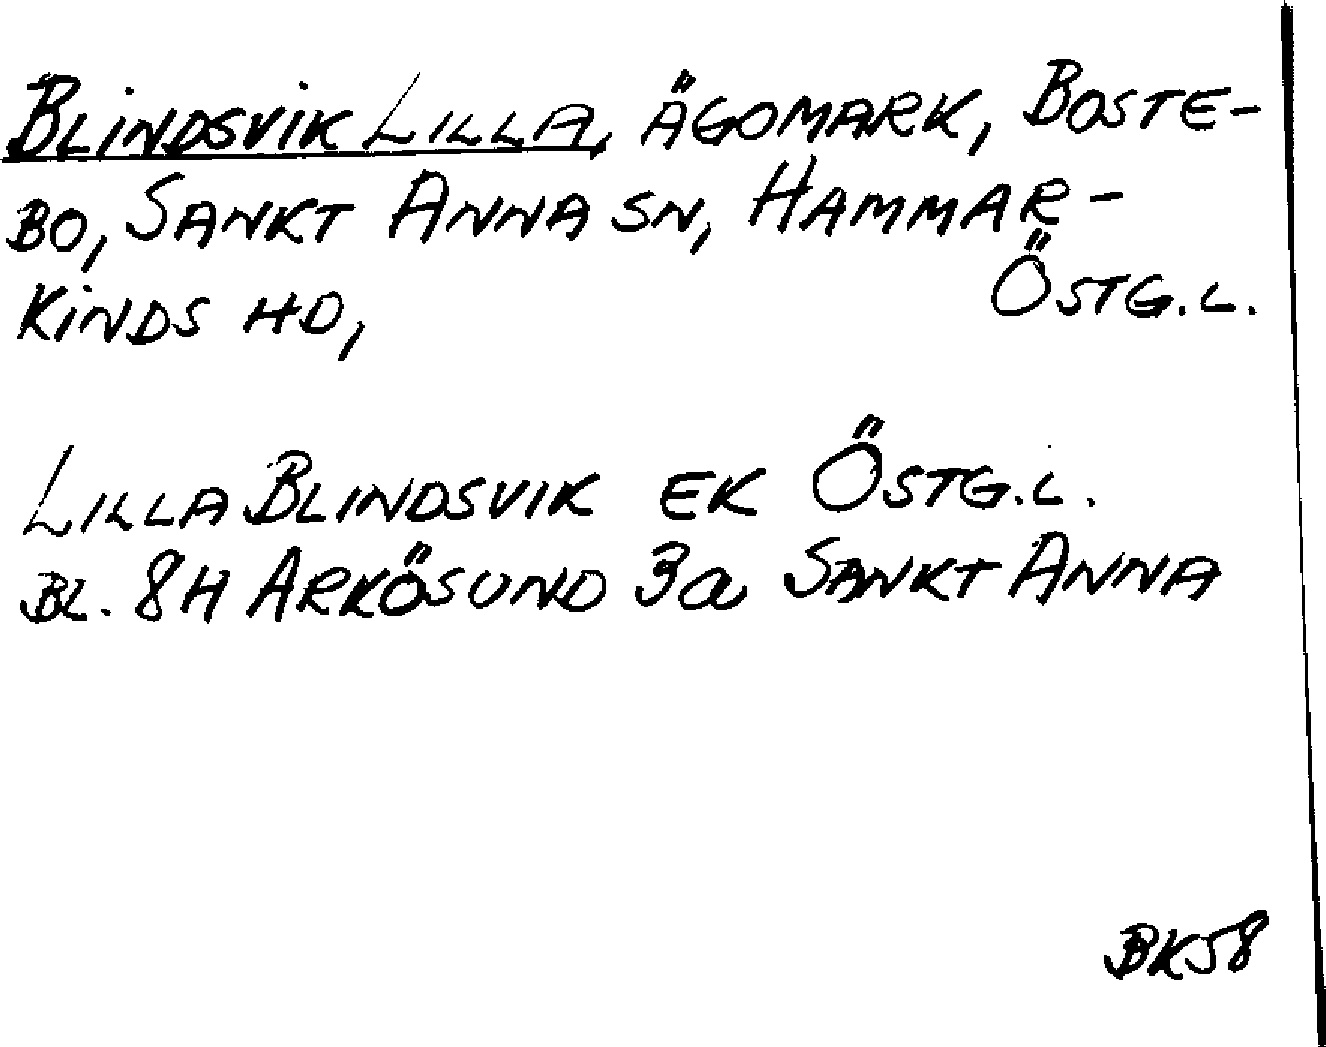 BLINDSVIK LILLA, ÄGOMARK, BOSTE-
BO, SANKT ANNA SN, HAMMAR-
KINDS HD, ÖSTG.L.
LILLA BLINDSVIK EK ÖSTG.L.
BL. 8H ARKÖSUND 3a SANKT ANNA
BK58